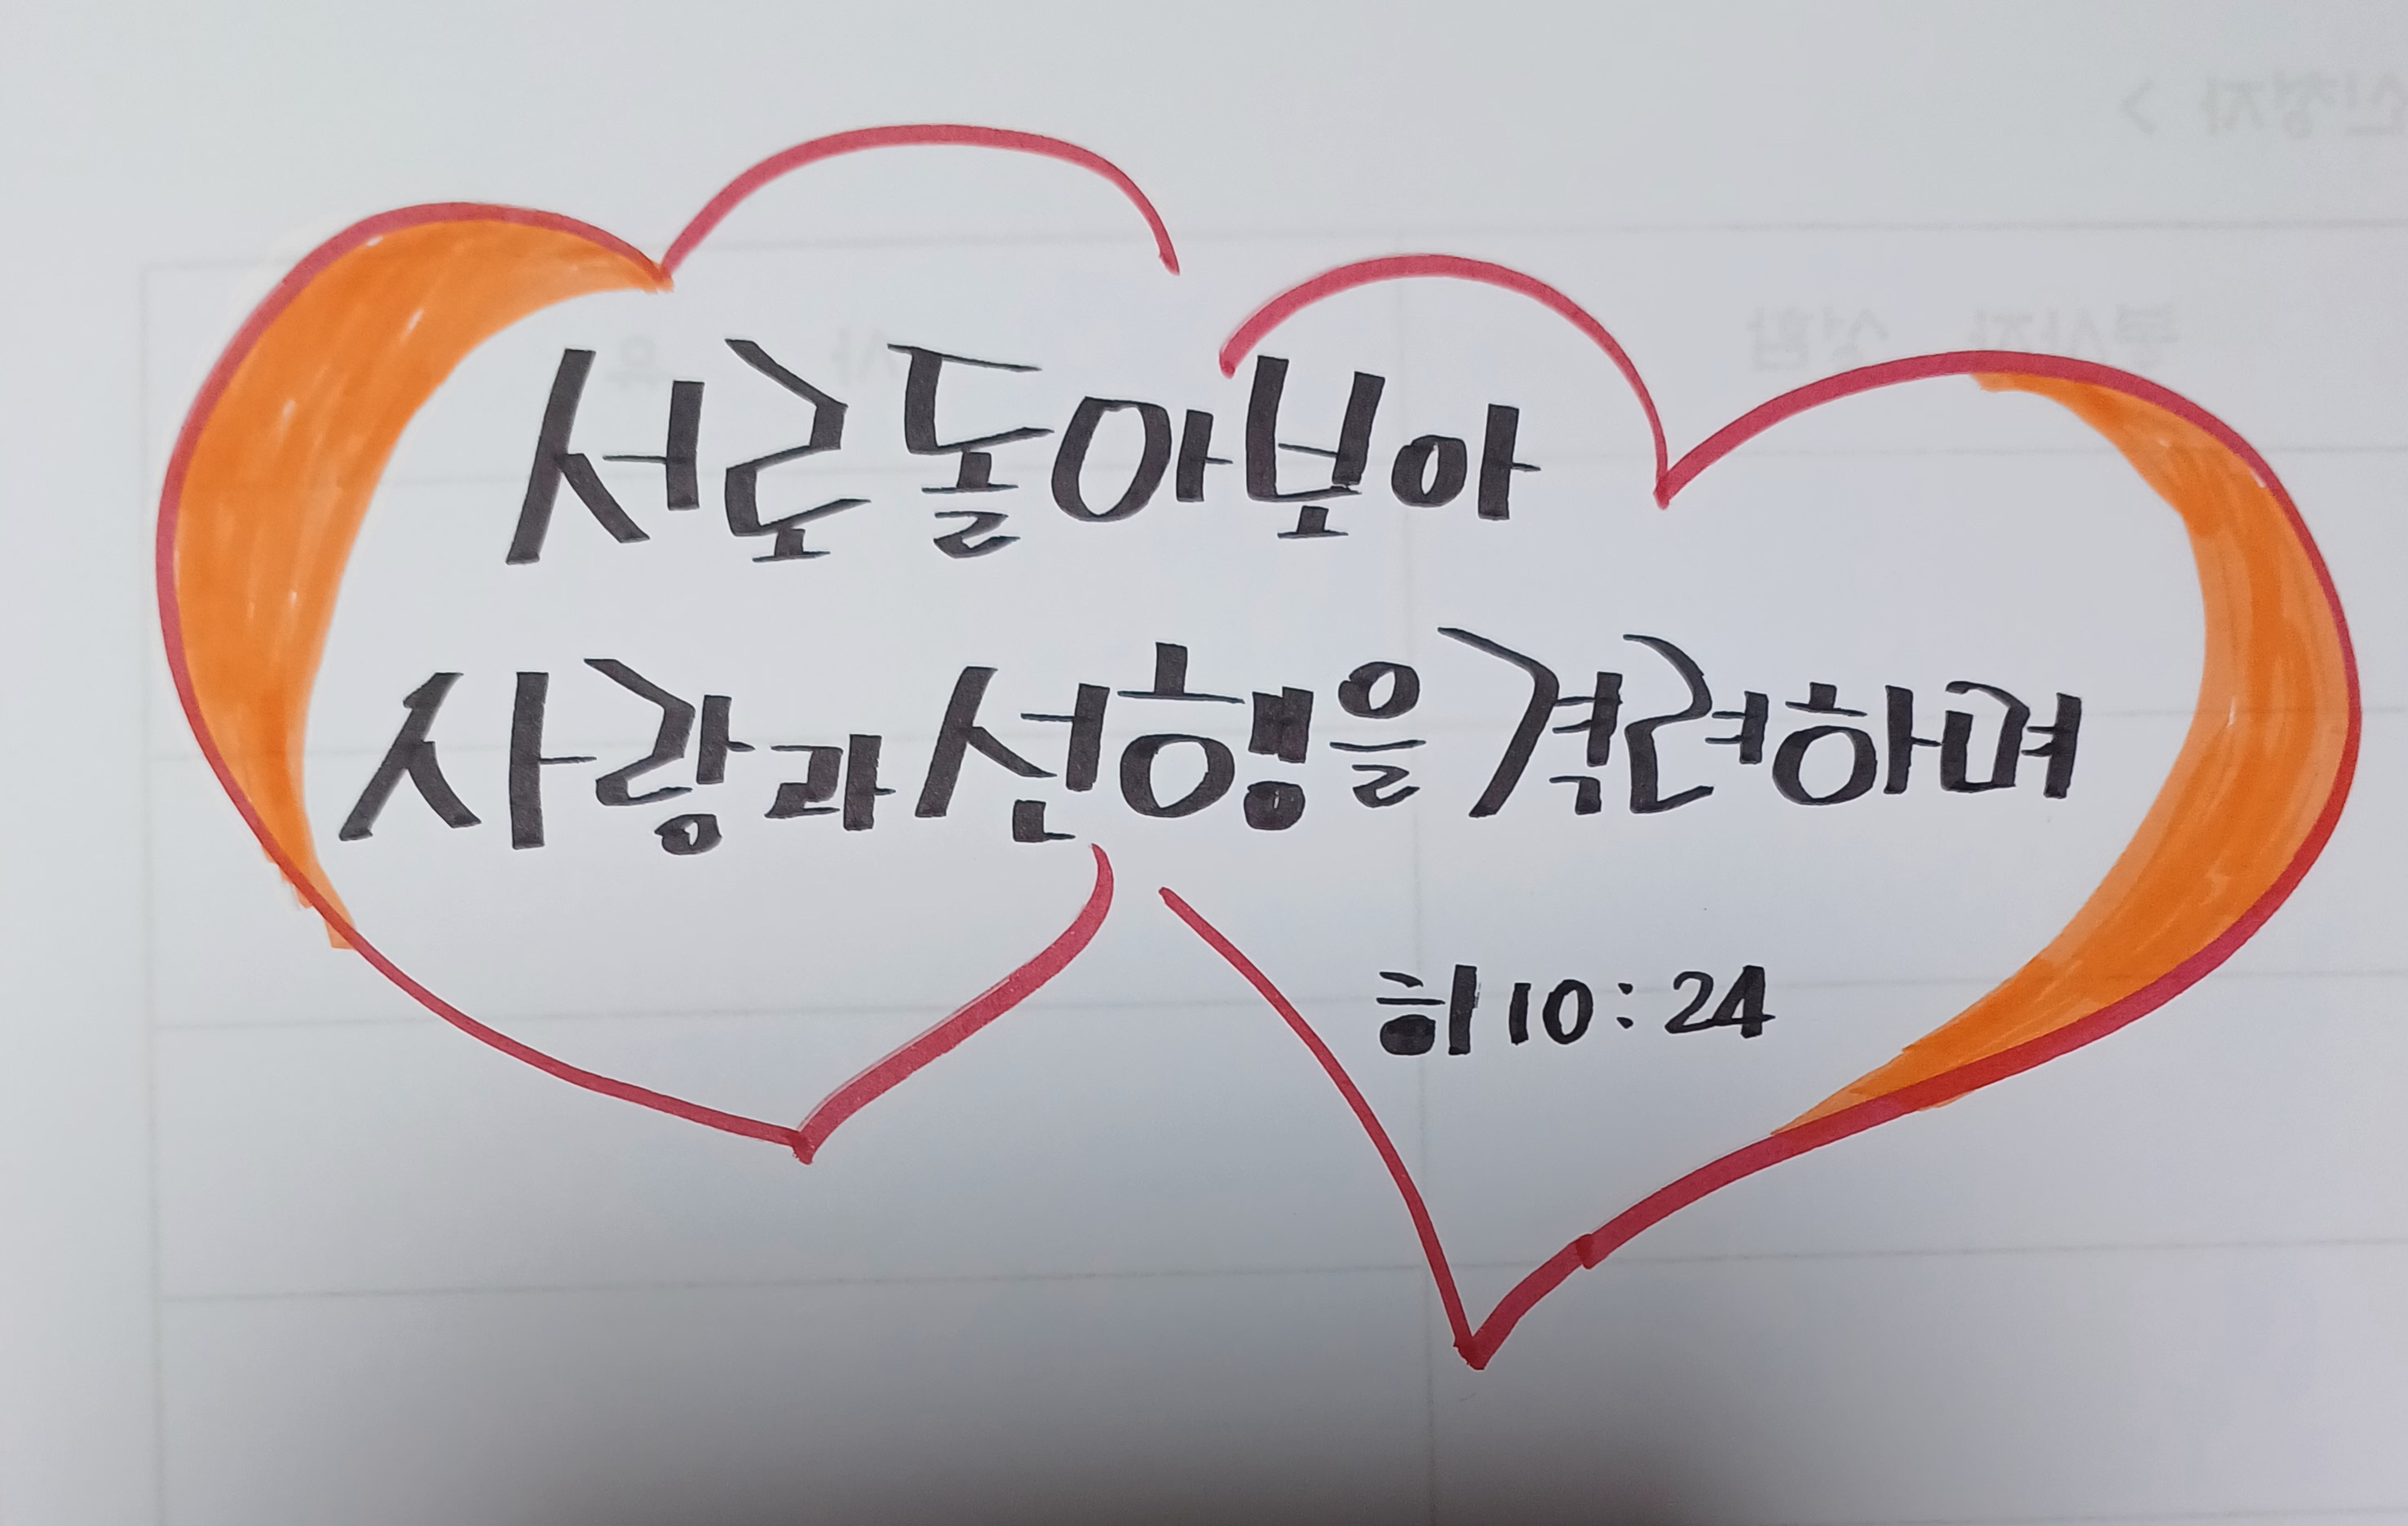 서로돌아보아
사랑과선행을격려하며
히10:24